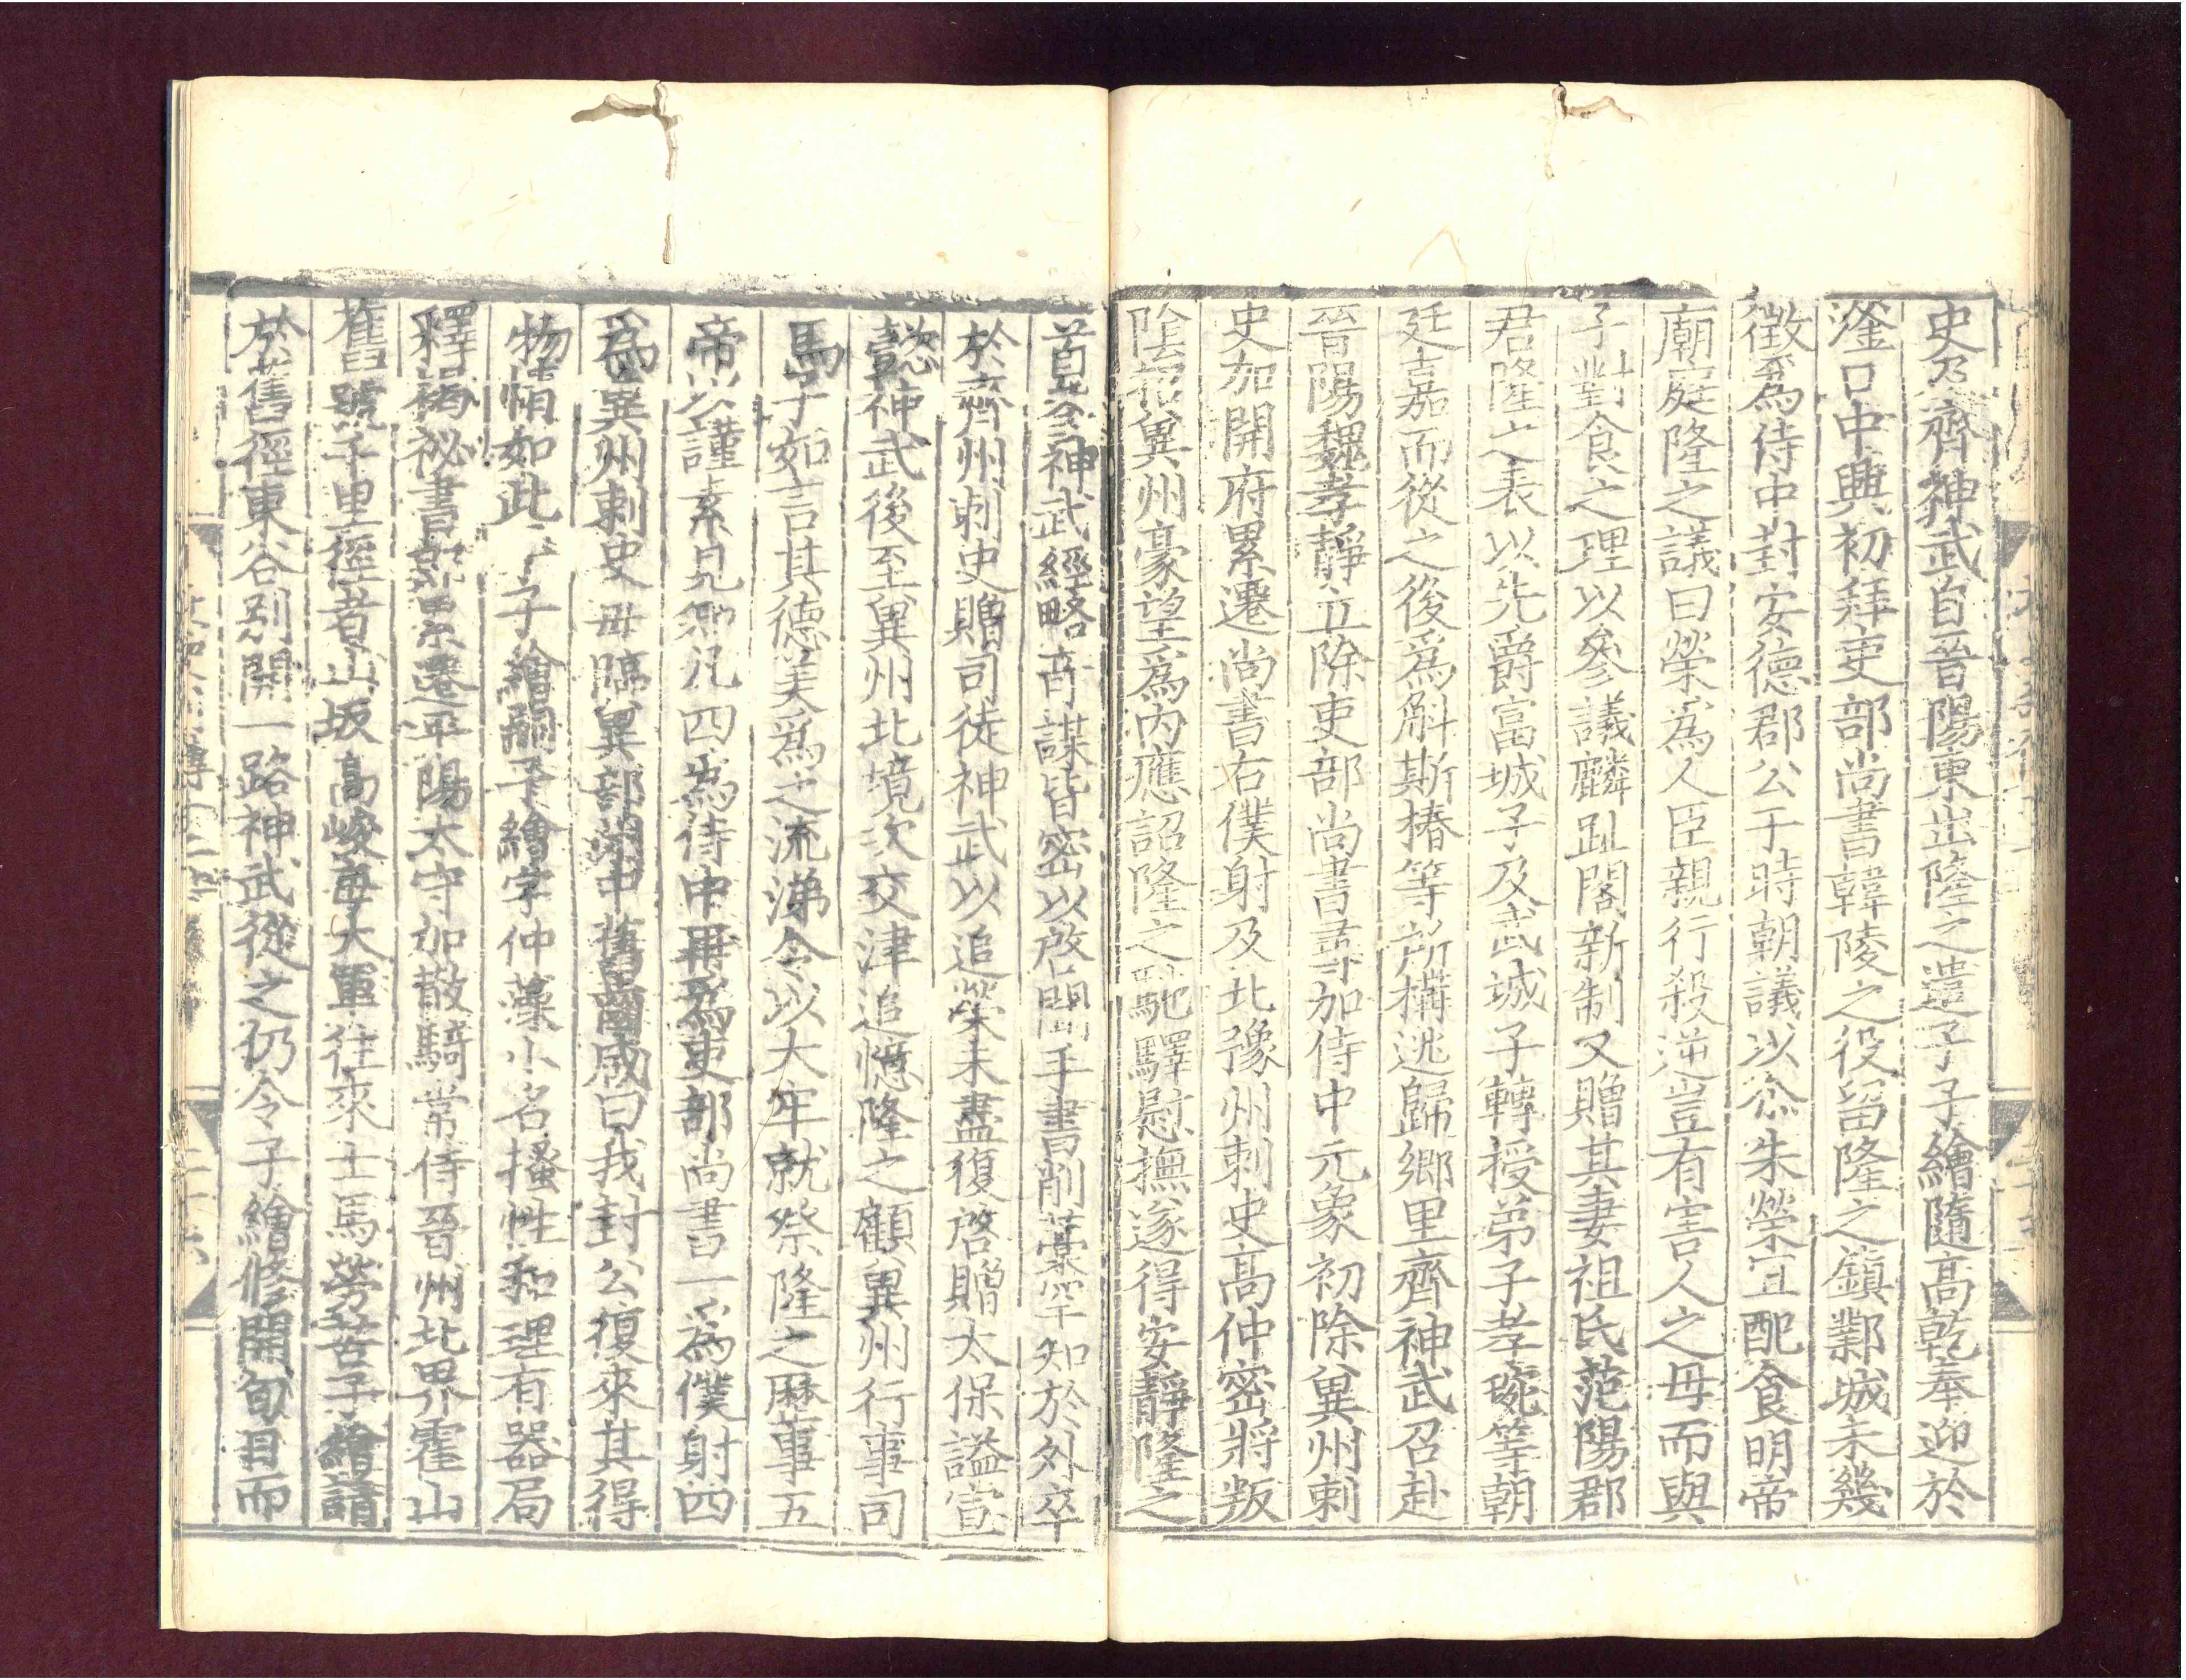 史及齊神武自晉陽東出隆之遣子子繪隨高乾奉迎於
滏口中興初拜吏部尚書韓陵之役留隆之鎮鄴城未幾
徵為侍中封安德郡公于時朝議以尒朱榮宜配食明帝
廟庭隆之議曰榮為人臣親行殺逆豈有害人之母而與
子對食之理以參議麟趾閣新制又贈其妻祖氏范陽郡
君隆之表以先爵富城子及武城子轉授弟子孝琬等朝
廷嘉而從之後為斛斯椿等所構逃歸鄉里齊神武召赴
晉陽魏孝靜立除吏部尚書尋加侍中元象初除兾州刺
史加開府累遷尚書右僕射及北豫州刺史高仲密將叛
陰招兾州豪望為內應詔隆之馳驛慰撫遂得安靜隆之
首參神武經略奇謀皆密以啓聞手書削藁罕知於外卒
於齊州刺史贈司徒神武以追榮未盡復啓贈太保謚宣
懿神武後至兾州北境次交津追憶隆之顧兾州行事司
馬子如言其德美為之流涕令以大牢就祭隆之歷事五
帝以謹素見知凡四為侍中再為吏部尚書一為僕射四
為兾州刺史每臨兾部閭中舊齒咸曰我封公復來其得
物情如此子子繪嗣子繪字仲藻小名搔性和理有器局
釋褐祕書郎累遷平陽太守加散騎常侍晉州北界霍山
舊號千里徑者山坂高峻每大軍往來士馬勞苦子繪請
於舊徑東谷別開一路神武從之仍令子繪修開旬日而